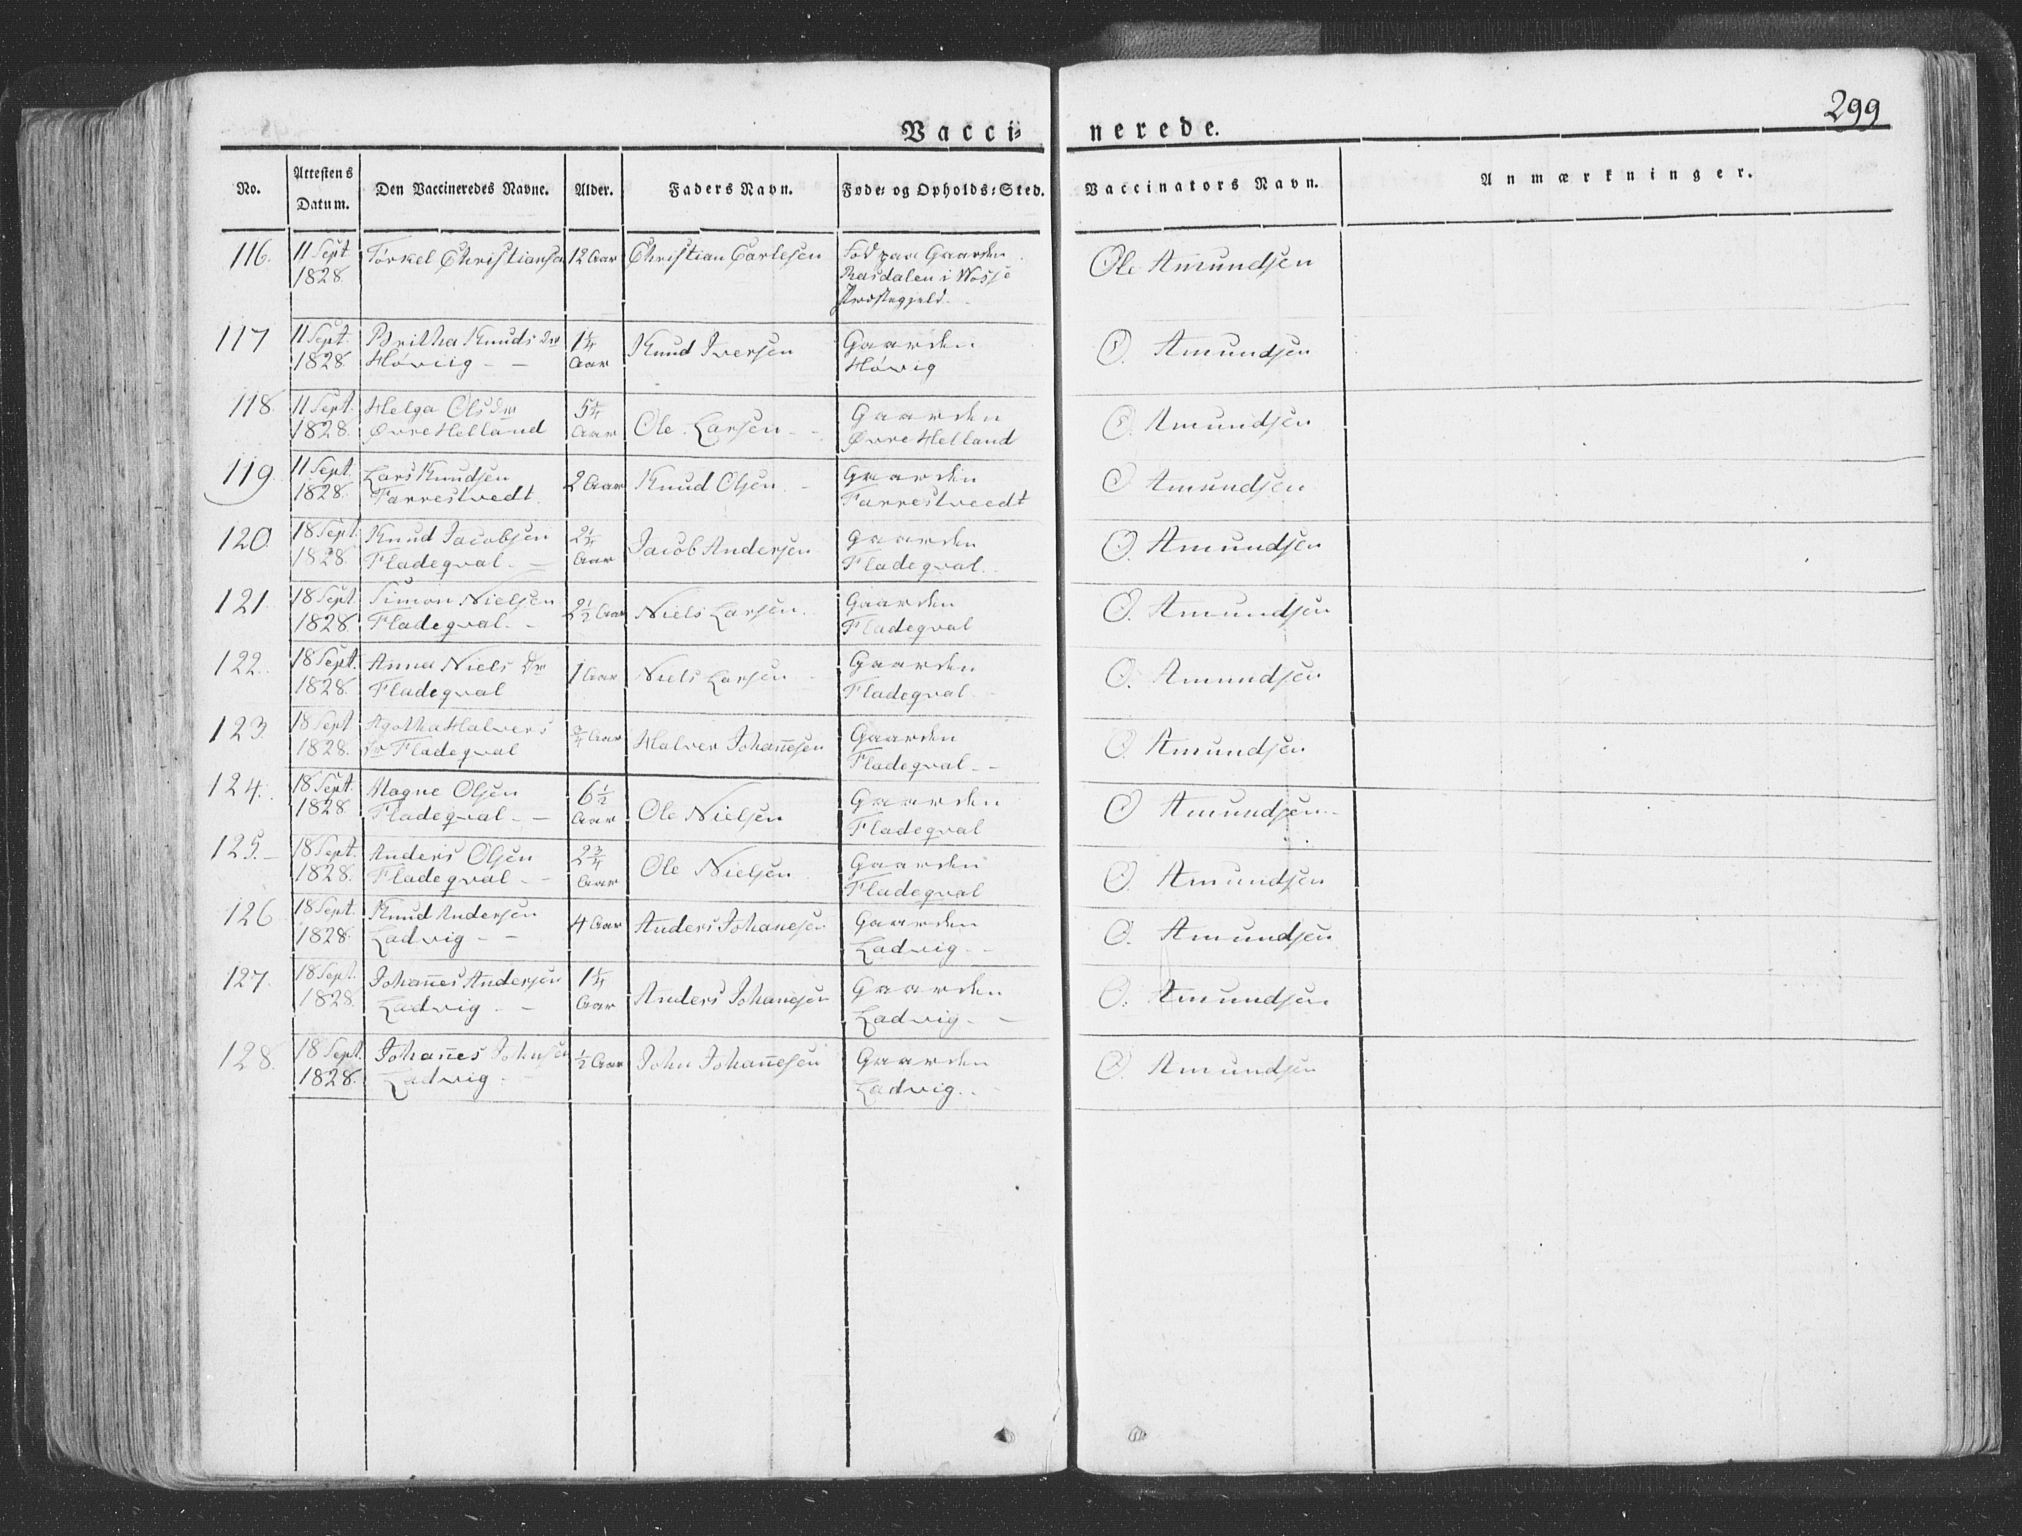 299
Vacci= nerede.
No. Attestens Datum. Den Vaccineredes Navne. Alder. Faders Navn. Føde= og Opholds=Sted. Vaccinators Navn. Anmærkninger.
116. 11 Sept Torkel Christiansen 12 Aar Christian Carlesen Fød paa Gaarden Ole Amundsen
1828 Rasdalen i Wosse
Præstegjeld
117 11 Sept. Britha Knuds Dr 1 1/4 Knud Iversen Gaarden O. Amundsen
1828. Høviig Aar Høvig
118. 11 Sept. Helga Ols Dr 5 1/4 Ole Larsen Gaarden O. Amundsen
1828. Øvre Helland Aar Øvre Helland
119 11 Sept. Lars Knudsen 2 Aar Knud Olsen Gaarden O Amundsen
1828. Farrestvedt. Farrestveedt
120. 18 Sept. Knud Jacobsen 2 1/4 Jacob Andersen Gaarden O. Amundsen
1828. Fladeqval. Aar Fladeqval.
121. 18 Sept. Simon Nielsen 2 1/2 Aar Niels Larsen. Gaarden O. Amundsen
1828. Fladeqval. Fladeqval
122. 18 Sept. Anna Niels Dr 1 Aar Niels Larsen Gaarden O. Amundsen
1828. Fladeqval Fladeqval.
123. 18 Sept Agotha Halvers 3/4 Aar Halver Johannesen Gaarden O. Amundsen
1828. Dr Fladeqval Fladeqval.
124. 18 Sept. Magne Olsen 6 1/2 Ole Nielsen Gaarden O Amundsen
1828 Fladeqval. Aar Fladeqval
125. 18 Sept. Anders Olsen 2 3/4 Ole Nielsen Gaarden O. Amundsen
1828. Fladeqval. Aar Fladeqval
126 18 Sept. Knud Andersen 4 Aar Anders Johanesen Gaarden O. Amundsen
1828. Ladvig Ladvig.
127. 18 Sept. Johannes Andersen 1 1/4 Anders Johanesen Gaarden O. Amundsen
1828. Ladvig Aar Ladvig.
128. 18 Sept. Johannes Johnsen 1/2 Aar John Johannesen Gaarden O. Amundsen
1828. Ladvig Ladvig.